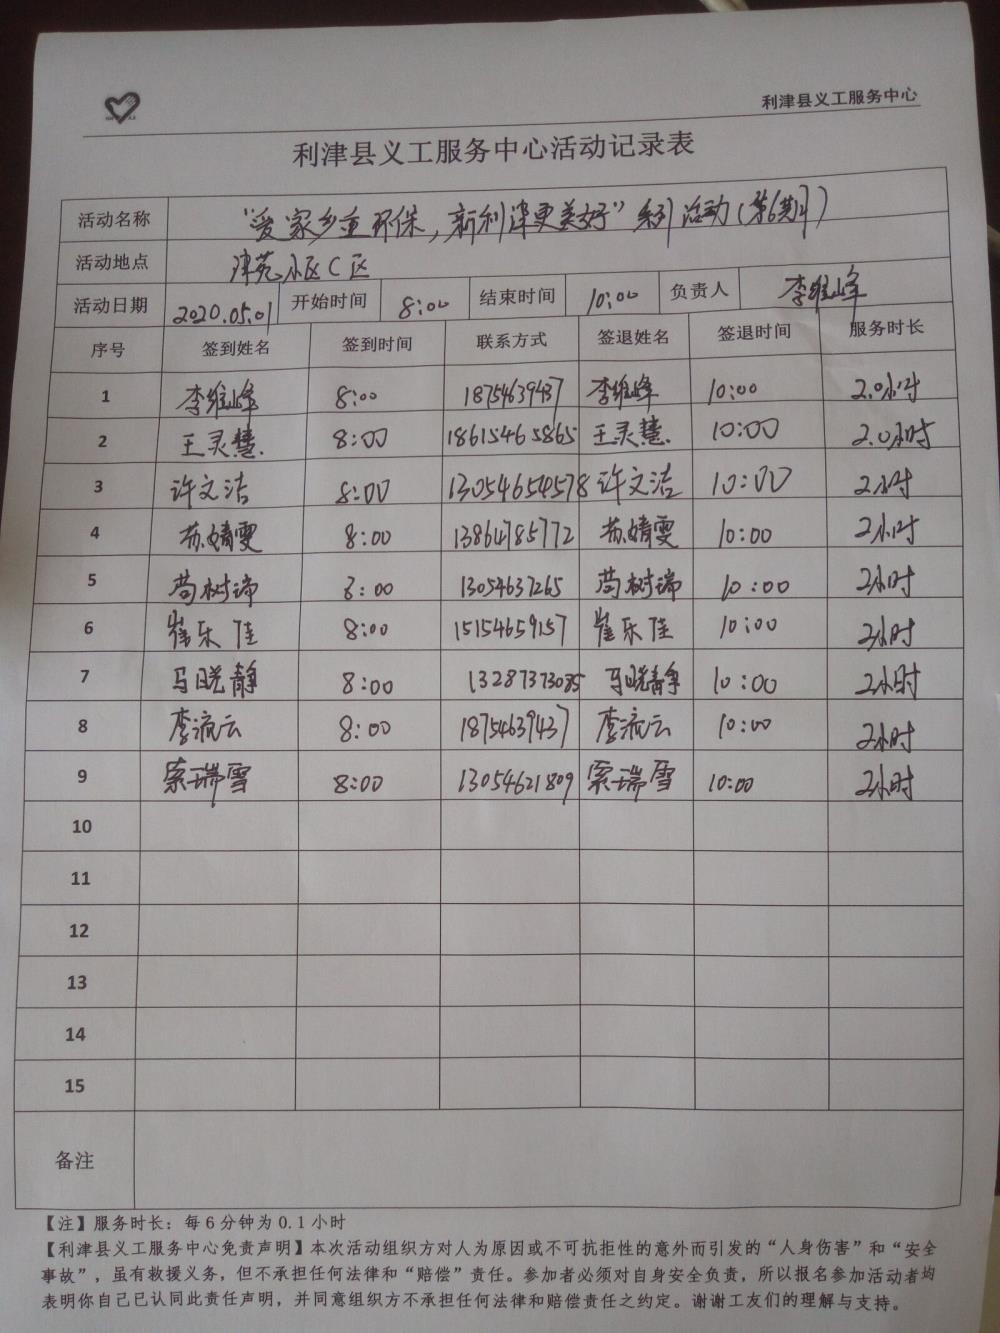 利津县义工服务中心
利津县义工服务中心活动记录表
活动名称 “爱家乡重环保，新利津更美好”系列活动（第6期）
活动地点 津苑小区C区
活动日期 2020.05.01 开始时间 8:00 结束时间 10:00 负责人 李维峰
序号 签到姓名 签到时间 联系方式 签退姓名 签退时间 服务时长
1 李维峰 8:00 18754639437 李维峰 10:00 2.0小时
2 王灵慧. 8:00 18615465865 王灵慧. 10:00 2.0小时
3 许文洁 8:00 13054654578 许文洁 10:00 2小时
4 苏婧雯 8:00 13864785772 苏婧雯 10:00 2小时
5 苟树瑞 8:00 13054637265 苟树瑞 10:00 2小时
6 崔乐佳 8:00 15154659157 崔乐佳 10:00 2小时
7 马晓静 8:00 13287373085 马晓静 10:00 2小时
8 李流云 8:00 18754639437 李流云 10:00 2小时
9 索瑞雪 8:00 13054621809 索瑞雪 10:00 2小时
10
11
12
13
14
15
备注
【注】服务时长：每6分钟为0.1小时
【利津县义工服务中心免责声明】本次活动组织方对人为原因或不可抗拒性的意外而引发的“人身伤害”和“安全
事故”，虽有救援义务，但不承担任何法律和“赔偿”责任。参加者必须对自身安全负责，所以报名参加活动者均
表明你自己已认同此责任声明，并同意组织方不承担任何法律和赔偿责任之约定。谢谢工友们的理解与支持。